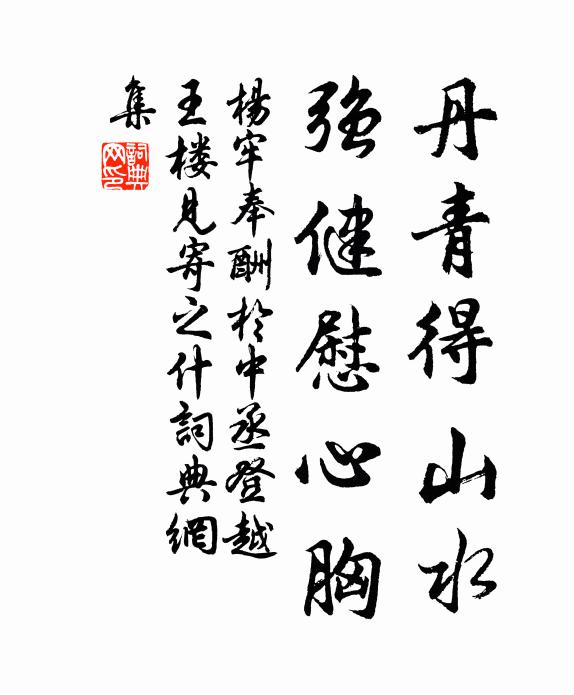 丹青得山水
强健慰心胸
楊牢奉酬於中丞登越
王楼見寄之什詞典網
集
詞典網印